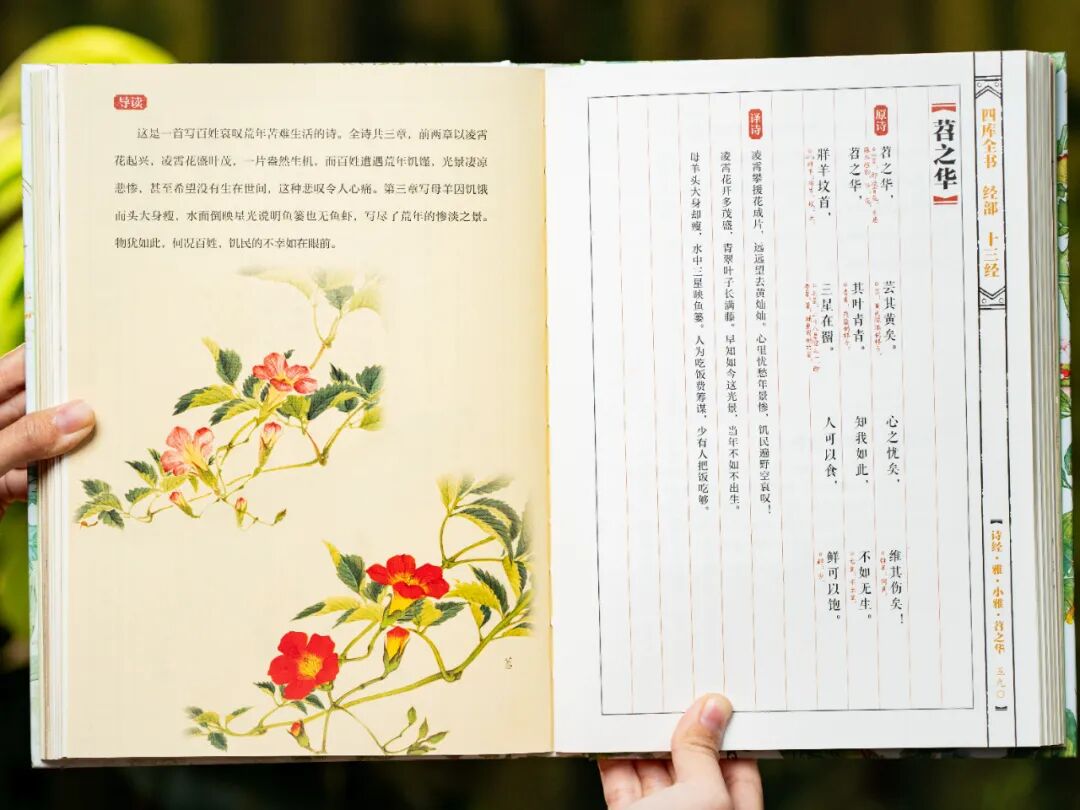 导读
这是一首写百姓哀叹荒年苦难生活的诗。全诗共三章，前两章以凌霄
花起兴，凌霄花盛叶茂，一片盎然生机，而百姓遭遇荒年饥馑，光景凄凉
悲惨，甚至希望没有生在世间，这种悲叹令人心痛。第三章写母羊因饥饿
而头大身瘦，水面倒映星光说明鱼篓也无鱼虾，写尽了荒年的惨淡之景。
物犹如此，何况百姓，饥民的不幸如在眼前。
四库全书 经部 十三经
【诗经·雅·小雅·苕之华 五九〇】
【苕之华】
原诗
苕之华，芸其黄矣。心之忧矣，维其伤矣！
苕之华，其叶青青。知我如此，不如无生。
牂羊坟首，三星在罶。人可以食，鲜可以饱。
译诗
凌霄攀援花成片，远远望去黄灿灿。心里忧愁年景惨，饥民遍野空哀叹！
凌霄花开多茂盛，青翠叶子长满藤。早知如今这光景，当年不如不出生。
母羊头大身却瘦，水中三星映鱼篓。人为吃饭费筹谋，少有人把饭吃够。